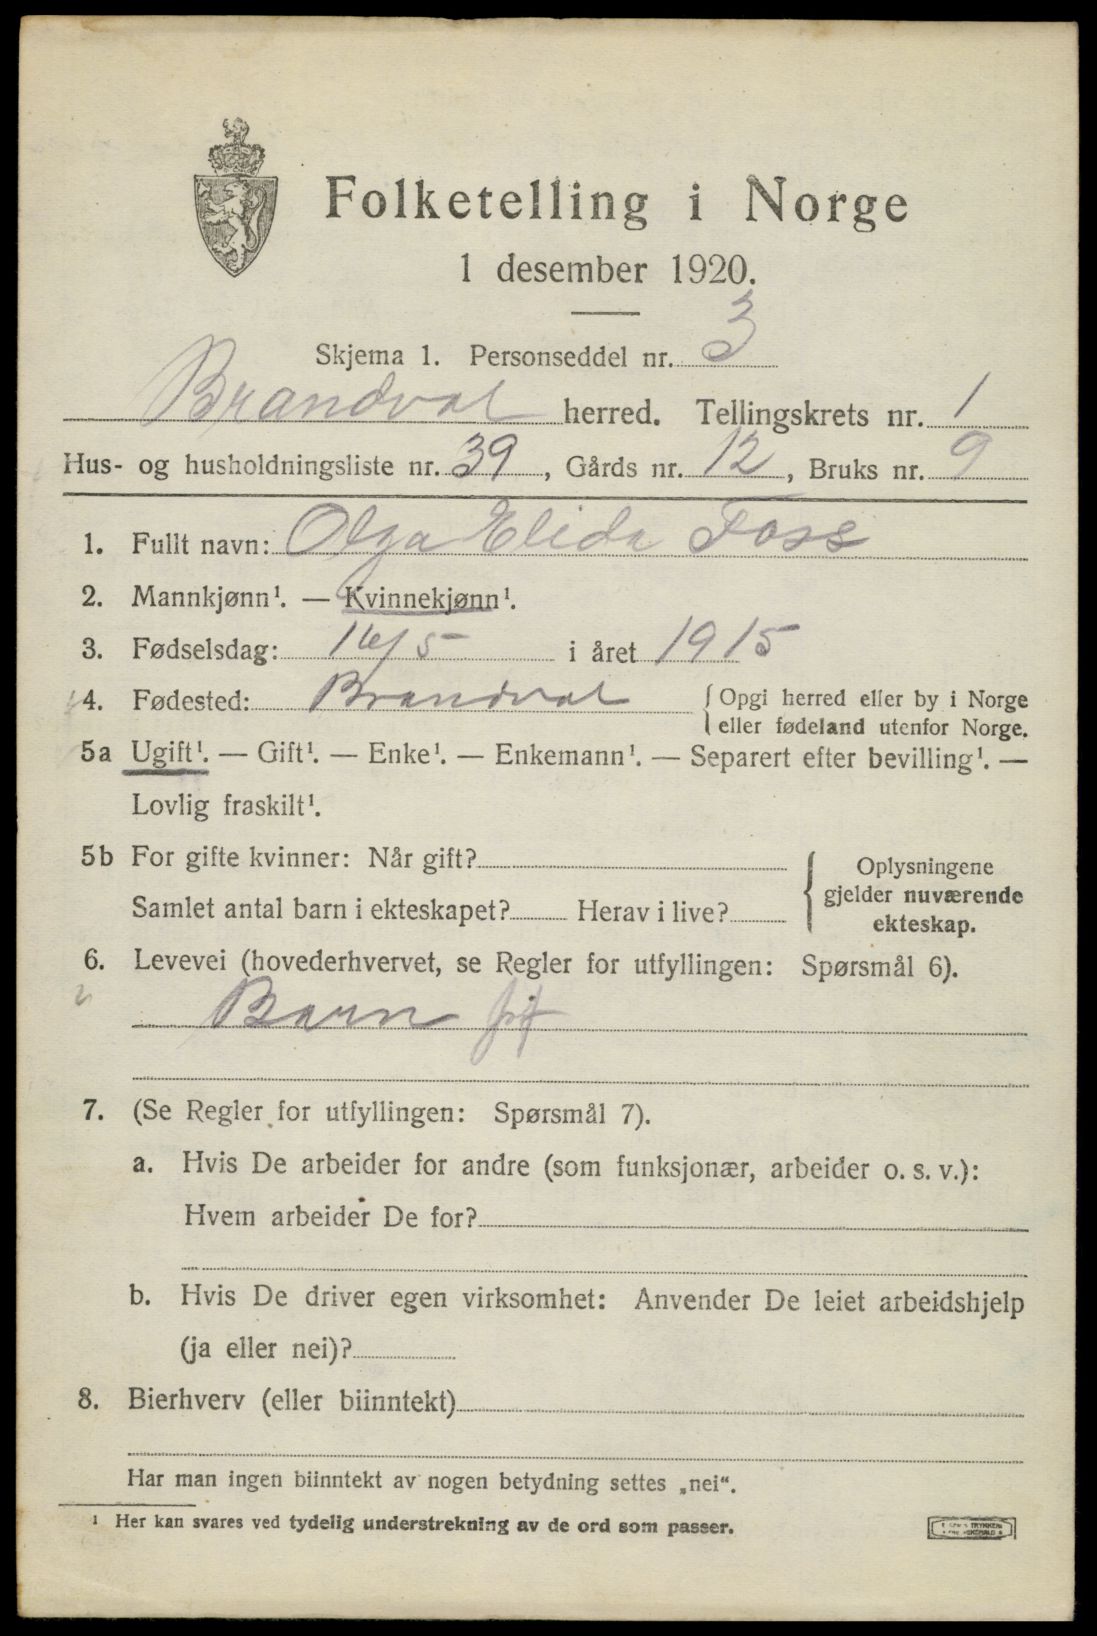 Folketelling i Norge
1 desember 1920.
Skjema 1. Personseddel nr. 3
Brandval herred. Tellingskrets nr. 1
Hus- og husholdningsliste nr. 39, Gårds nr. 12, Bruks nr. 9
1. Fullt navn: Olga Elida Foss
2. Mannkjønn¹. — Kvinnekjønn¹.
3. Fødselsdag: 16/5 i året 1915
4. Fødested: Brandval {Opgi herred eller by i Norge
eller fødeland utenfor Norge.
5a Ugift¹. — Gift¹. — Enke¹. — Enkemann¹. — Separert efter bevilling¹. —
Lovlig fraskilt¹.
5b For gifte kvinner: Når gift?
Samlet antal barn i ekteskapet? Herav i live?
{Oplysningene
gjelder nuværende
ekteskap.
6. Levevei (hovederhvervet, se Regler for utfyllingen: Spørsmål 6).
Barn
7. (Se Regler for utfyllingen: Spørsmål 7).
a. Hvis De arbeider for andre (som funksjonær, arbeider o. s. v.):
Hvem arbeider De for?
b. Hvis De driver egen virksomhet: Anvender De leiet arbeidshjelp
(ja eller nei)?
8. Bierhverv (eller biinntekt)
Har man ingen biinntekt av nogen betydning settes „nei“.
¹ Her kan svares ved tydelig understrekning av de ord som passer.